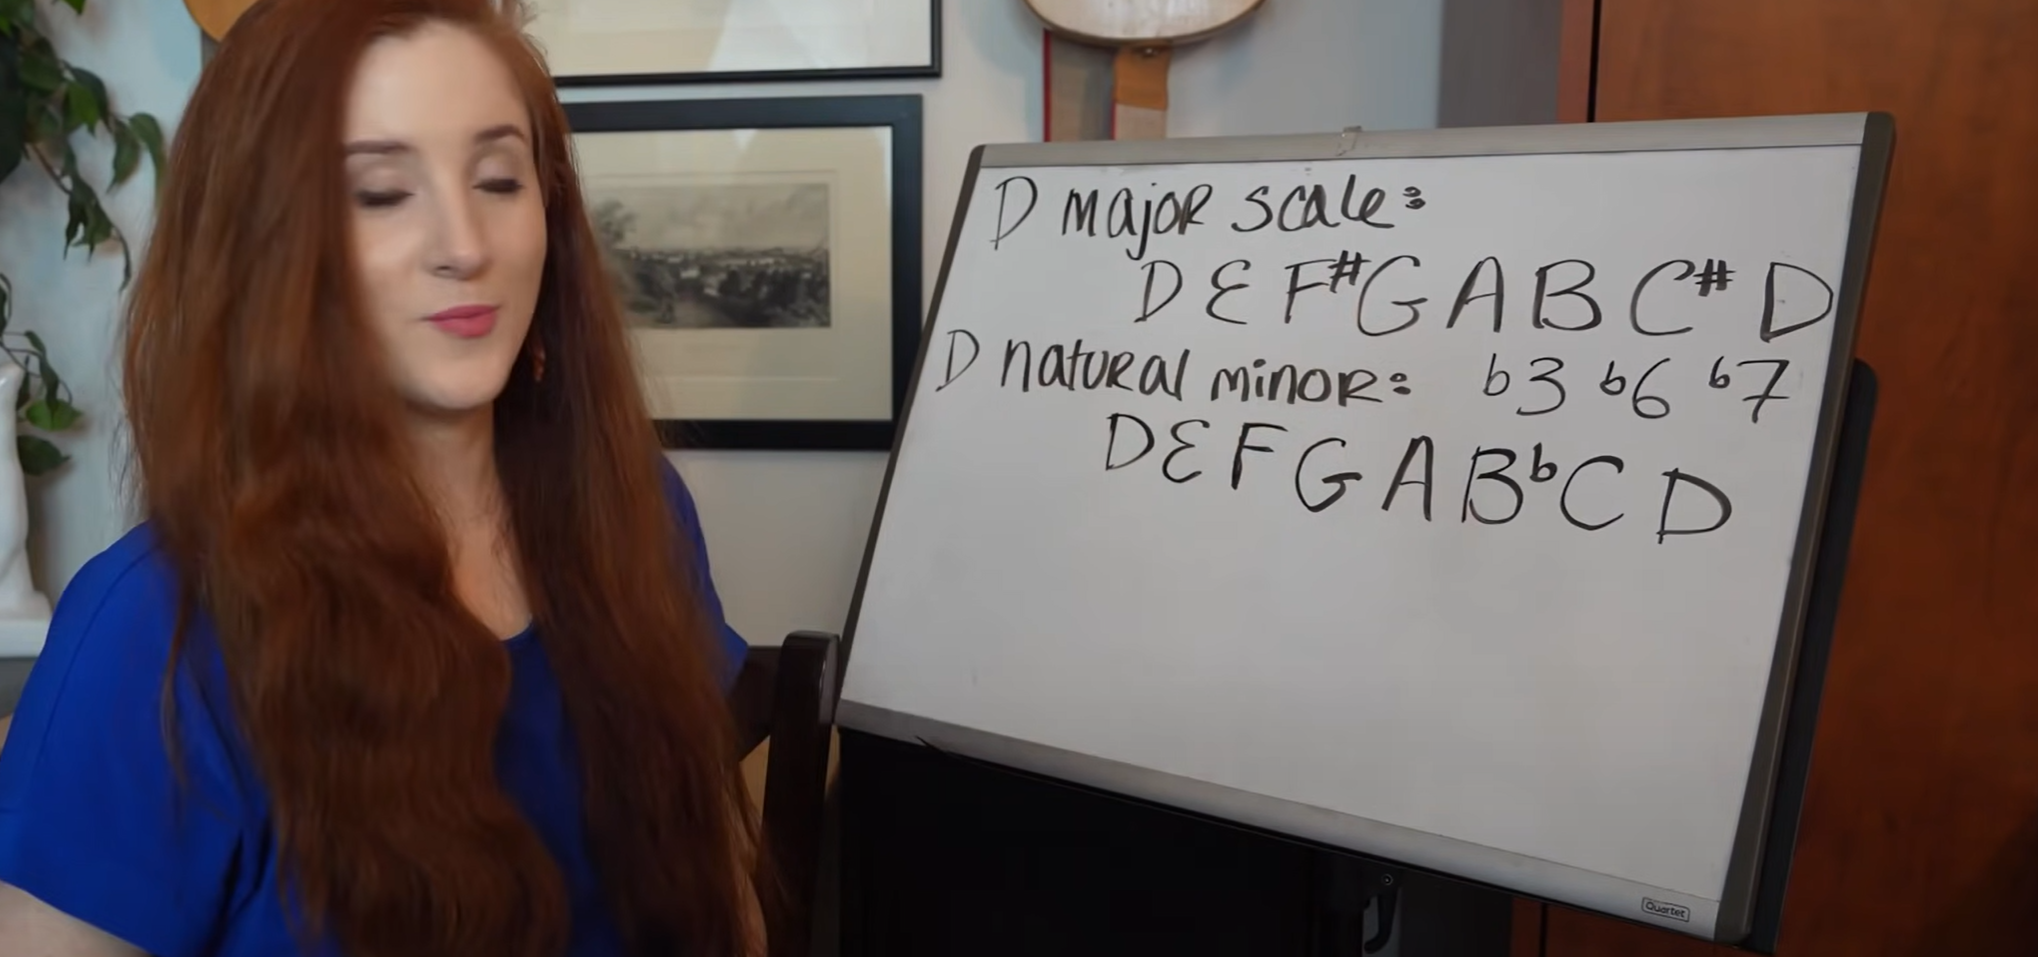 D major scale:
D E F# G A B C# D
D natural minor: b3 b6 b7
D E F G A Bb C D
Quartet